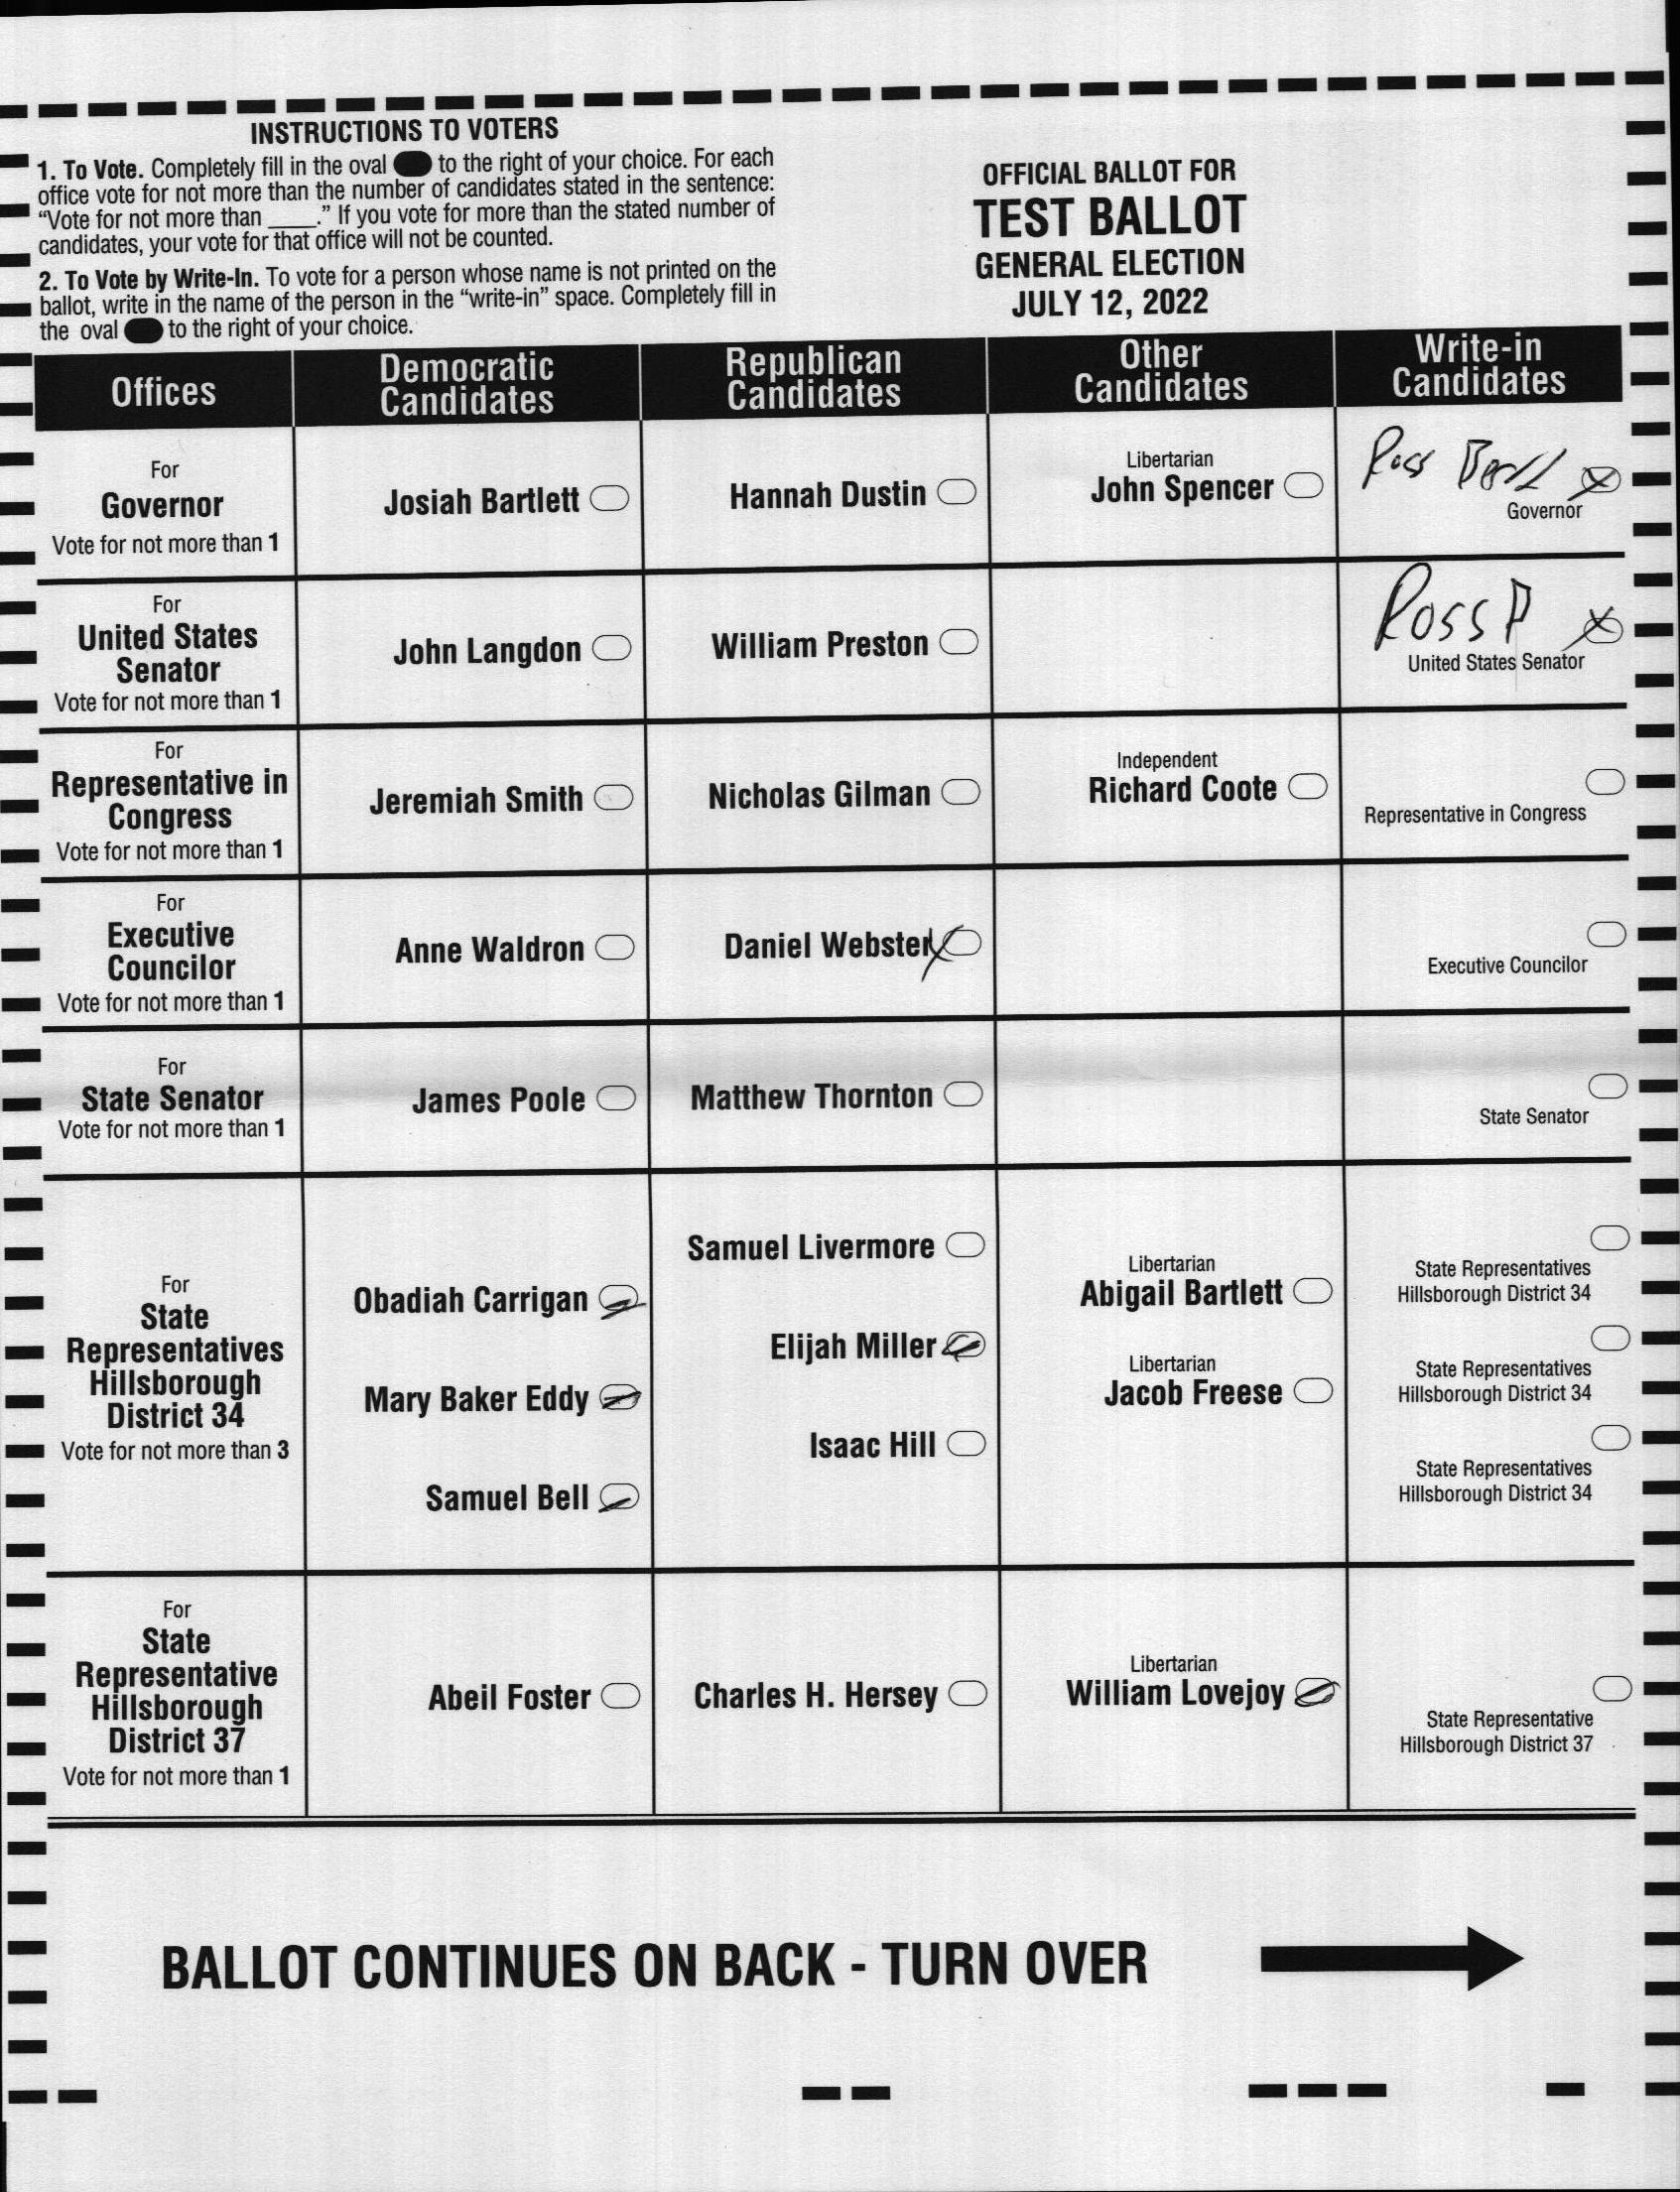 INSTRUCTIONS TO VOTERS
1. To Vote. Completely fill in the oval to the right of your choice. For each
office vote for not more than the number of candidates stated in the sentence:
“Vote for not more than ____.” If you vote for more than the stated number of
candidates, your vote for that office will not be counted.
2. To Vote by Write-In. To vote for a person whose name is not printed on the
ballot, write in the name of the person in the “write-in” space. Completely fill in
the oval to the right of your choice.
OFFICIAL BALLOT FOR
TEST BALLOT
GENERAL ELECTION
JULY 12, 2022
Offices
Democratic
Candidates
Republican
Candidates
Other
Candidates
Write-in
Candidates
For
Governor
Vote for not more than 1
Josiah Bartlett
Hannah Dustin
Libertarian
John Spencer
Ross
Governor
For
United States
Senator
Vote for not more than 1
John Langdon
William Preston
Ross P
United States Senator
For
Representative in
Congress
Vote for not more than 1
Jeremiah Smith
Nicholas Gilman
Independent
Richard Coote
Representative in Congress
For
Executive
Councilor
Vote for not more than 1
Anne Waldron
Daniel Webster
Executive Councilor
For
State Senator
Vote for not more than 1
James Poole
Matthew Thornton
State Senator
For
State
Representatives
Hillsborough
District 34
Vote for not more than 3
Obadiah Carrigan
Mary Baker Eddy
Samuel Bell
Samuel Livermore
Elijah Miller
Isaac Hill
Libertarian
Abigail Bartlett
Libertarian
Jacob Freese
State Representatives
Hillsborough District 34
State Representatives
Hillsborough District 34
State Representatives
Hillsborough District 34
For
State
Representative
Hillsborough
District 37
Vote for not more than 1
Abeil Foster
Charles H. Hersey
Libertarian
William Lovejoy
State Representative
Hillsborough District 37
BALLOT CONTINUES ON BACK - TURN OVER